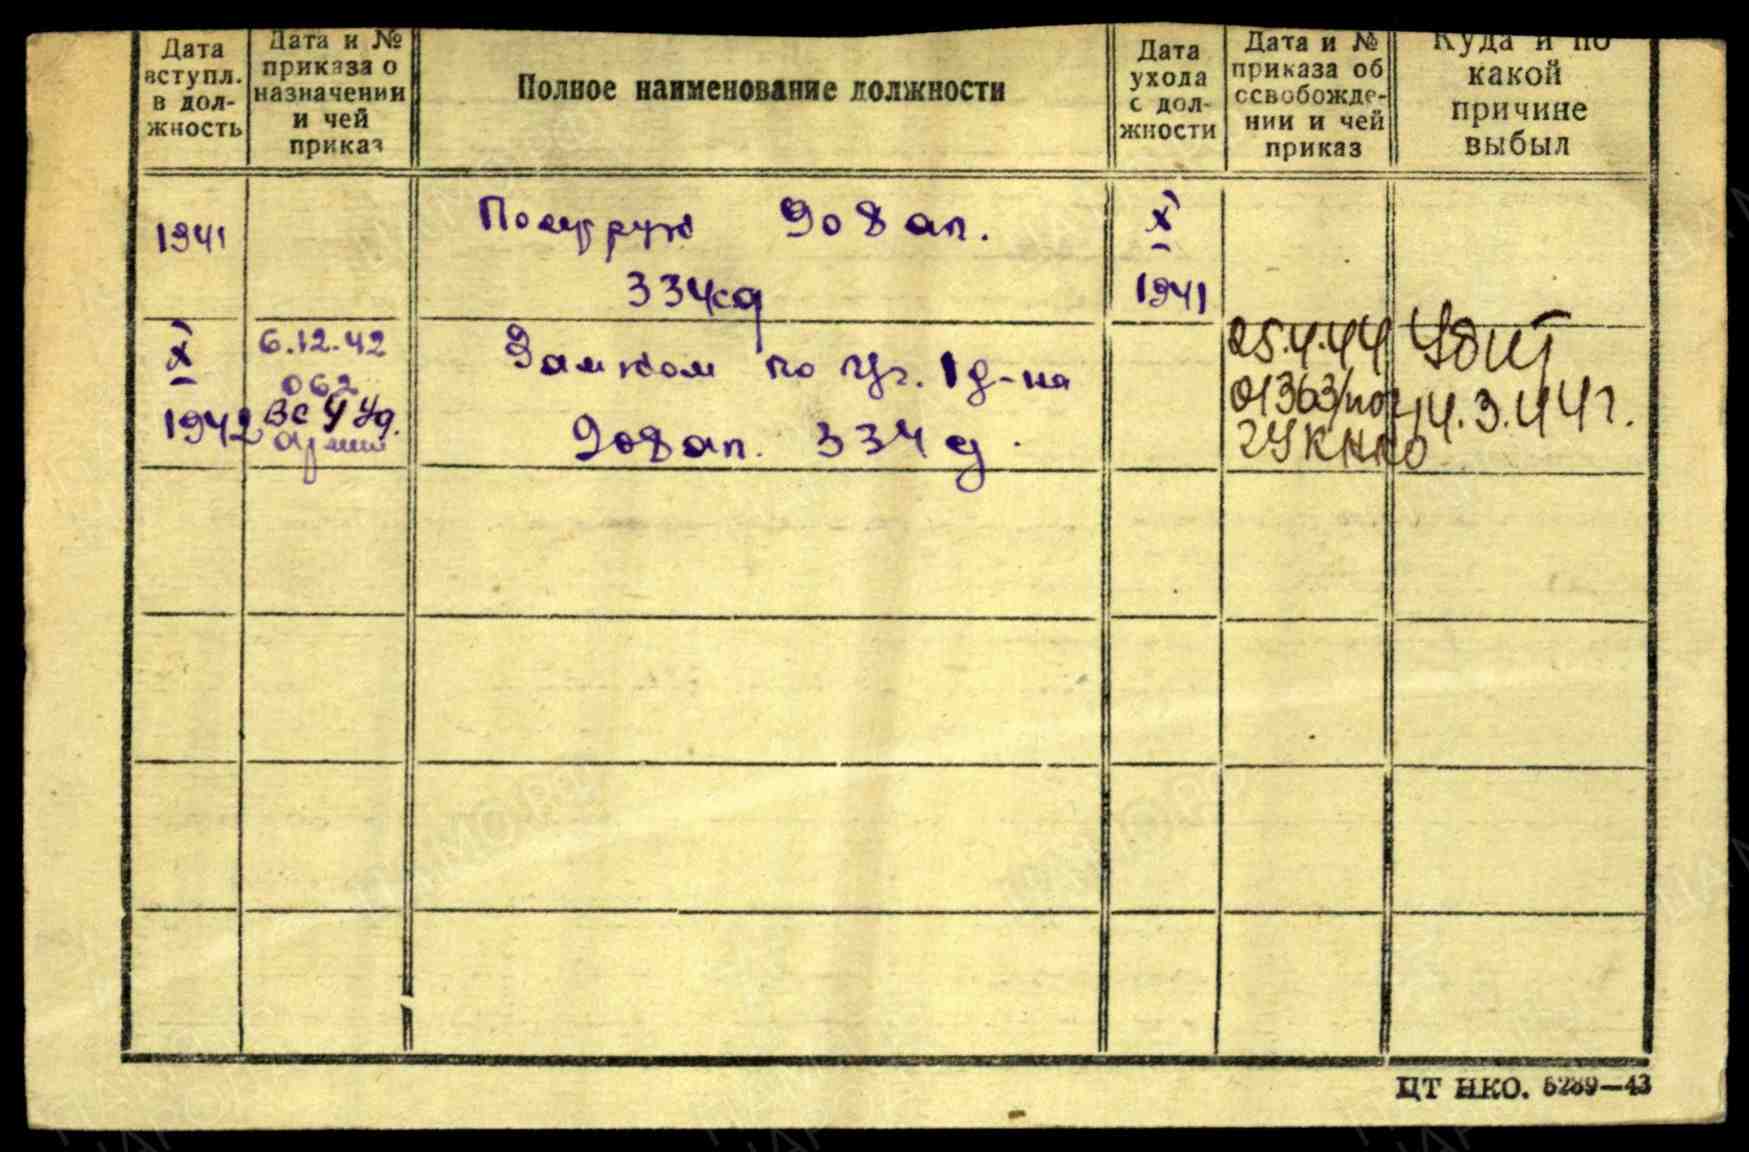 Дата вступл. в дол- жность
Дата и № приказа о назначении и чей приказ
Полное наименование должности
Дата ухода с дол- жности
Дата и № приказа об освобожде- нии и чей приказ
Куда и по какой причине выбыл
1941
Политрук 908 ап.
334сд
X
1941
X
1942
6.12.42
062
ВС 4 Уд.
армии
Замком по
1 д-на
908 ап. 334 сд.
25.4.44
01363/пог
ГУК НКО
Убит
14.3.44 г.
ЦТ НКО. 5289—43